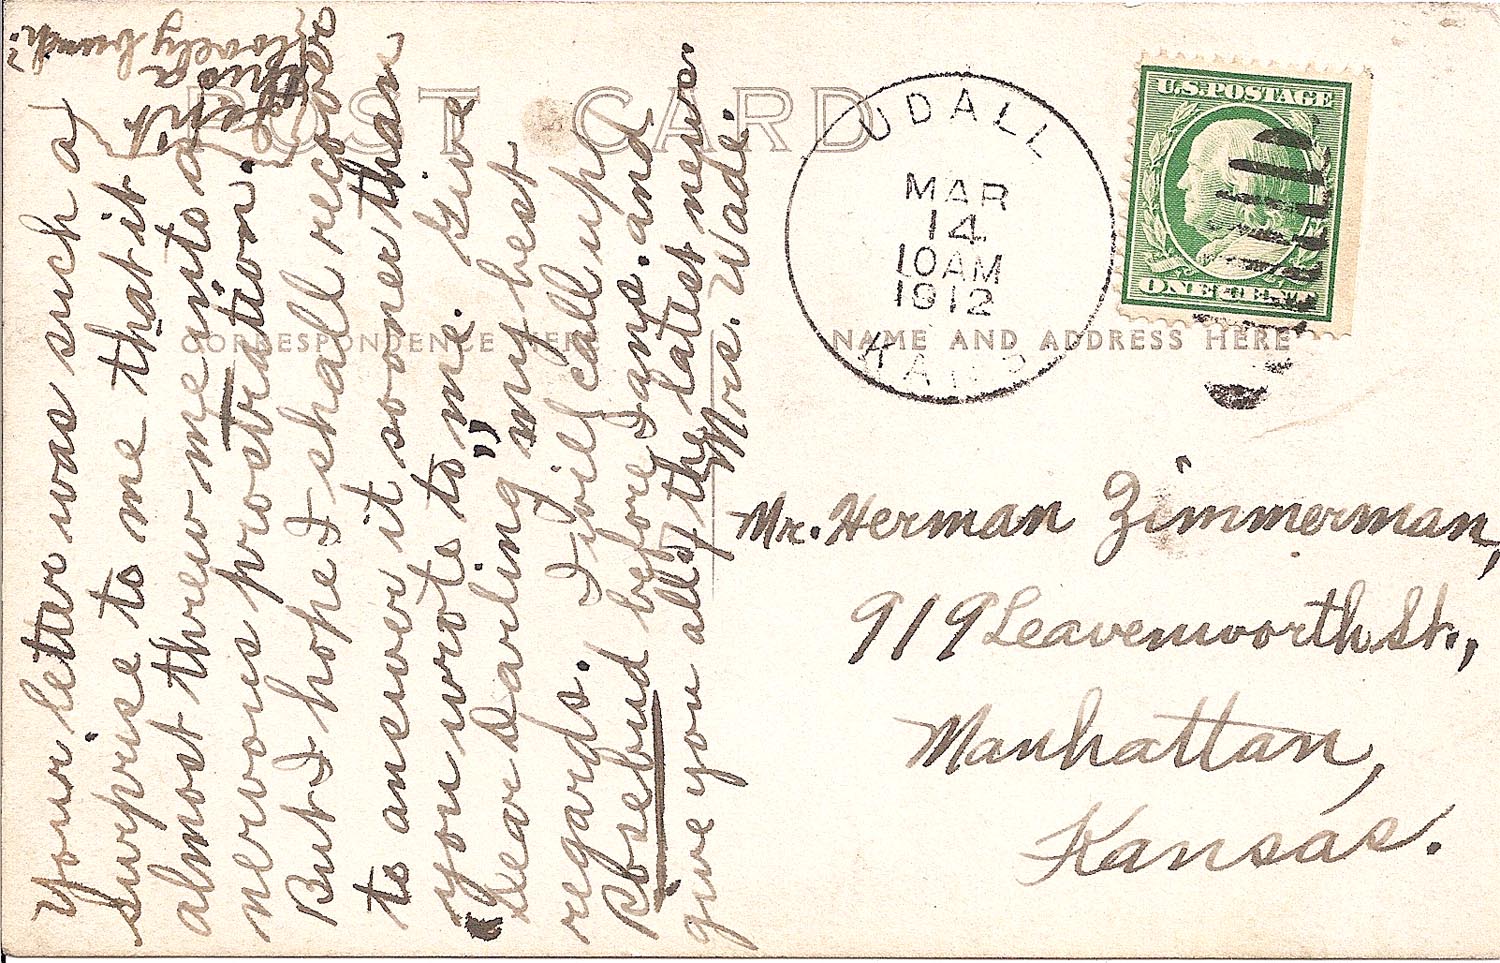 POST CARD
CORRESPONDENCE HERE
NAME AND ADDRESS HERE
UDALL
MAR
14
10 AM
1912
KANS
U.S. POSTAGE
ONE CENT
Mr. Herman Zimmerman,
919 Leavenworth St.,
Manhattan,
Kansas.
Your letter was such a
surprise to me that it
almost threw me into a
nervous prostration.
But I hope I shall recover
to answer it sooner than
you wrote to me. Give
"Dear Darling" my best
regards. I will call up
Rosebud before I ans. and
give you all of the latest news.
Mrs. Wade.
Isn't
this a
lovely bunch?